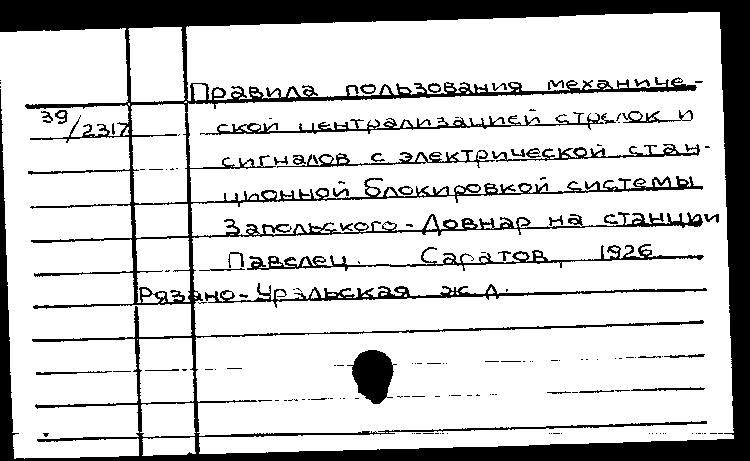 Правила пользования механиче-
39/2317 ской централизацией стрелок и
сигналов с электрической стан-
ционной блокировкой системы
Запольского-Довнар на станции
Павелец. Саратов, 1926.
Рязано-Уральская ж.д.